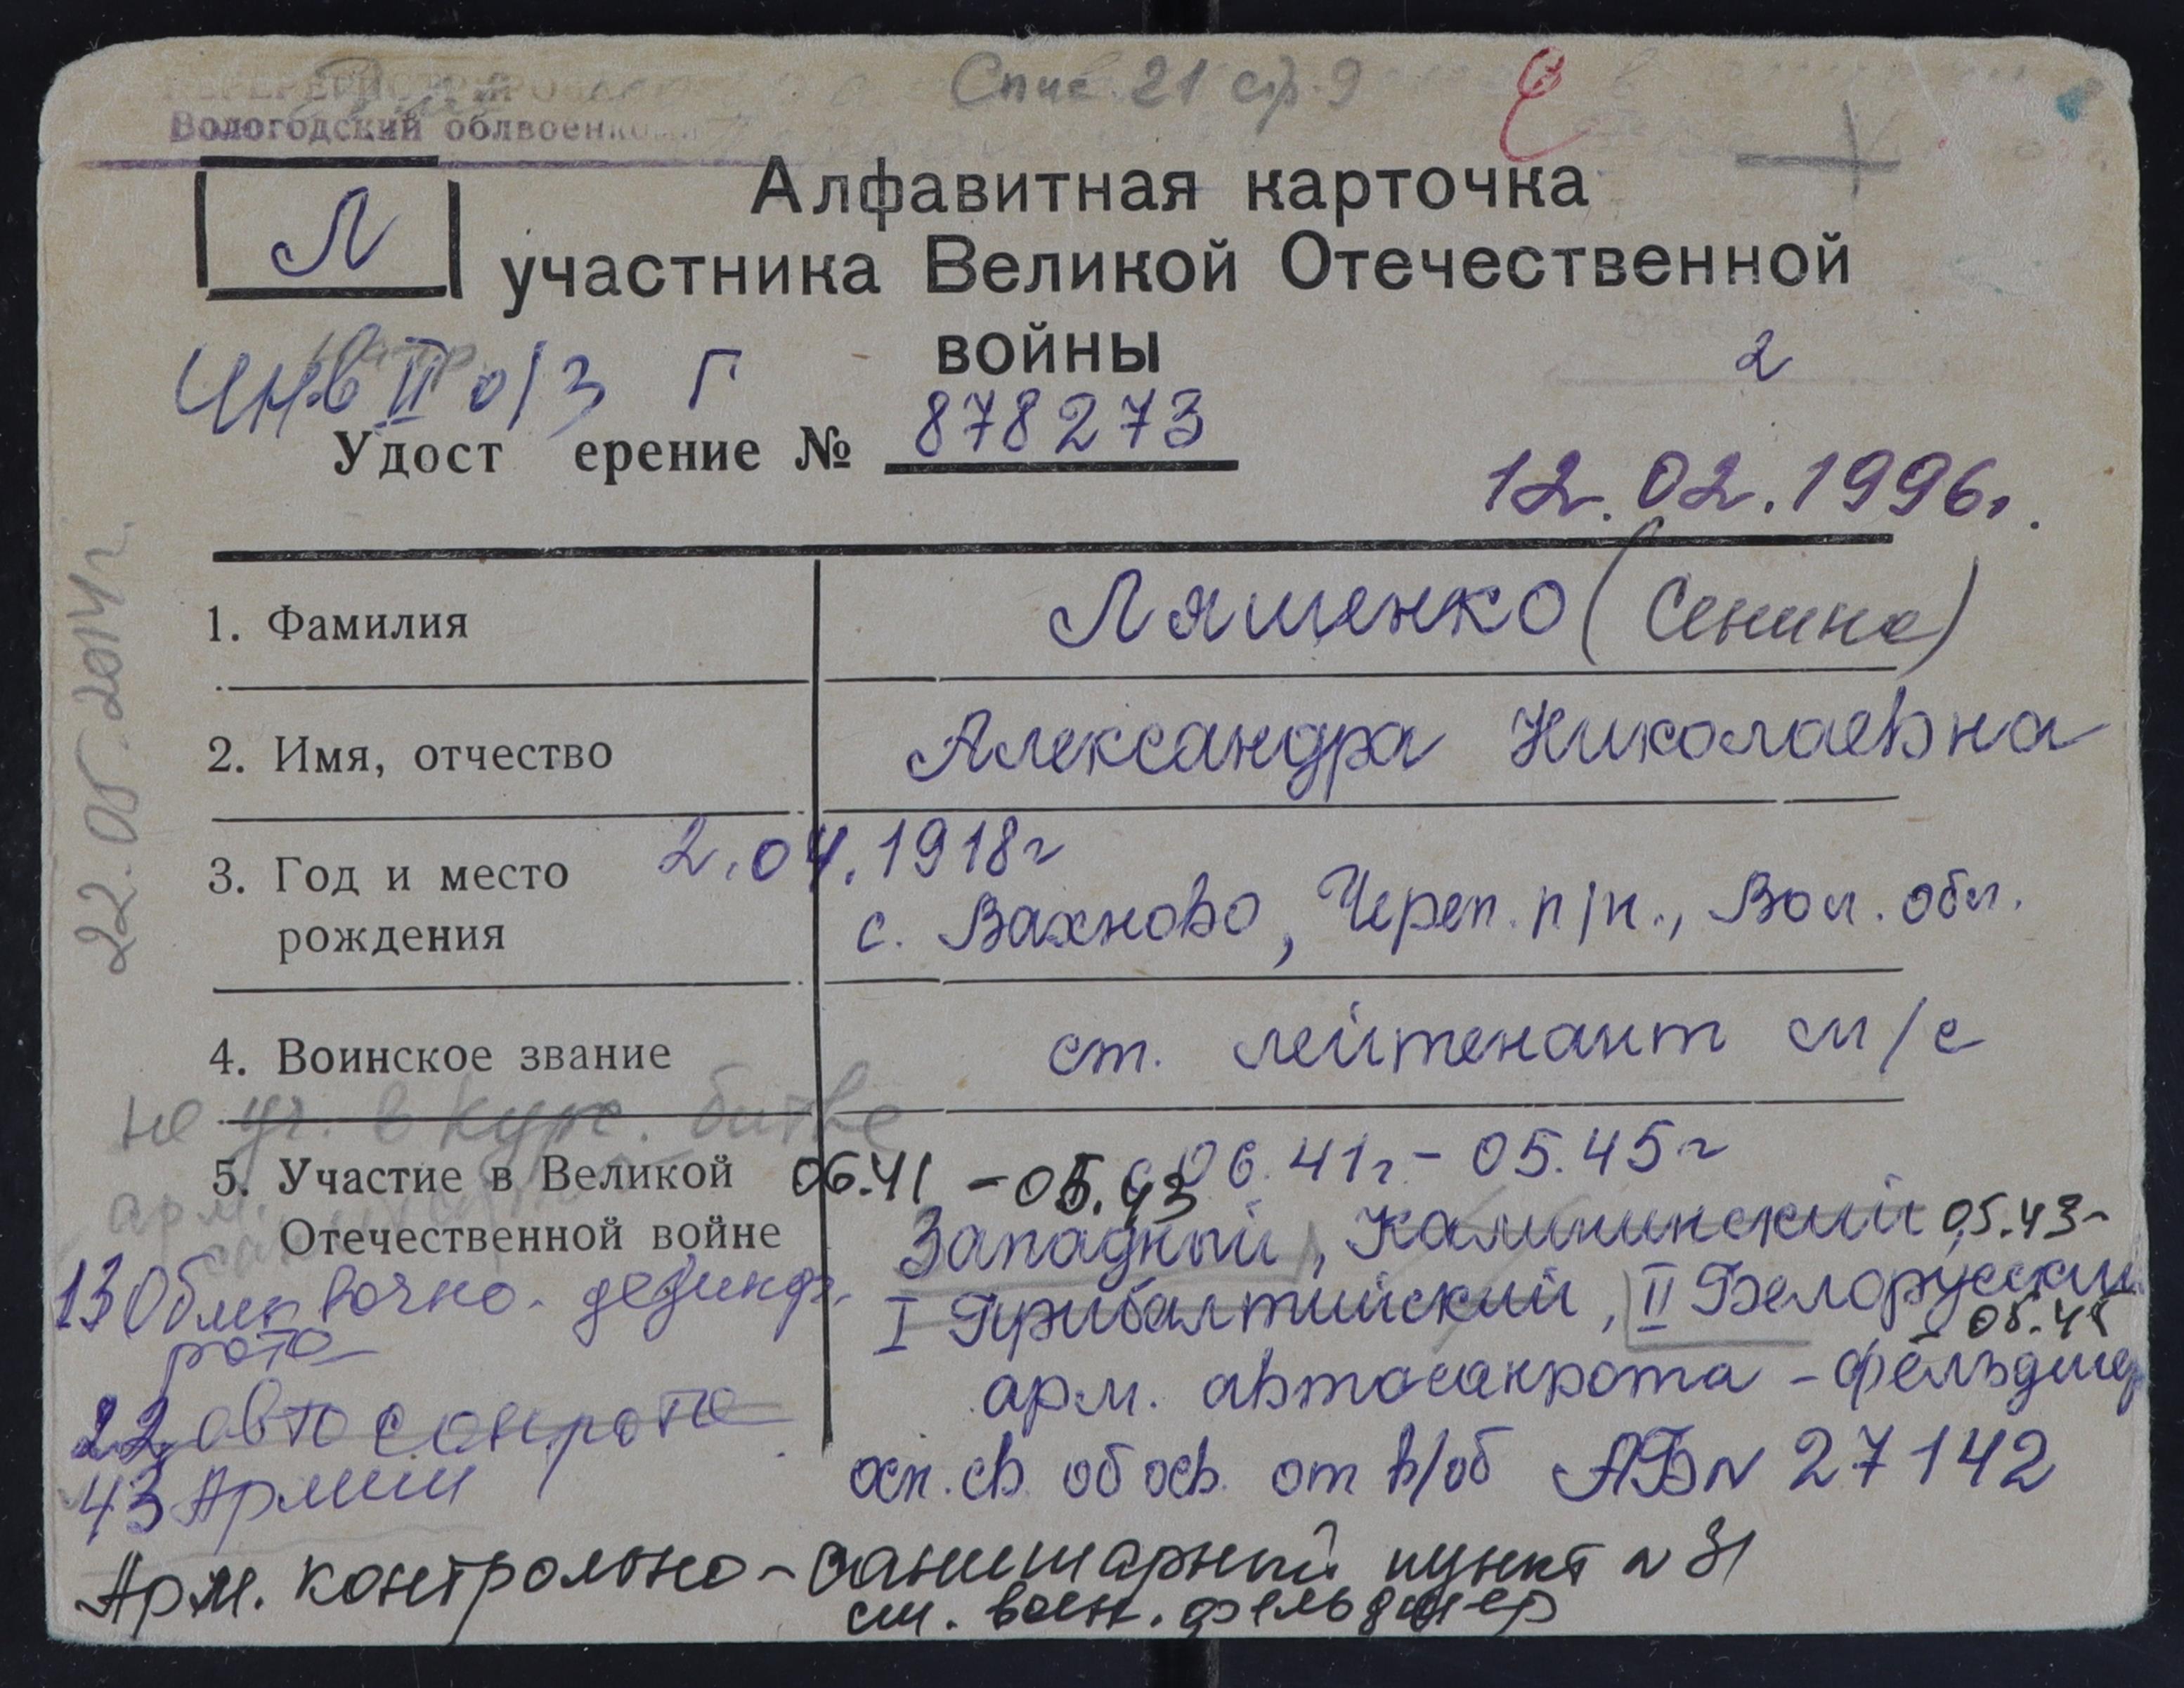 Спис. 21 стр. 9
Вологодский облвоенком
Л
Алфавитная карточка
участника Великой Отечественной
войны
2
инв II о/з Г
Удост ерение № 878273
12.02.1996г.
22.05.2014г.
1. Фамилия Лященко (Сенина)
2. Имя, отчество Александра Николаевна
3. Год и место рождения 2.04.1918г
с. Вахново, Череп. р/н., Вол. обл.
4. Воинское звание ст. лейтенант м/с
не уч. в курс. битве
5. Участие в Великой Отечественной войне 06.41 - 05.43 с 06.41г - 05.45г
арм.
Западный, Калининский 05.43-
I Прибалтийский, II Белорусский
05.45
13 Обмывочно-дезинф. рота
арм. автосанрота - фельдшер
22 автосанрота
43 Армии
осн. св. об осв. от в/об АБ№ 27142
Арм. контрольно-санитарный пункт №31
ст. воен. фельдшер